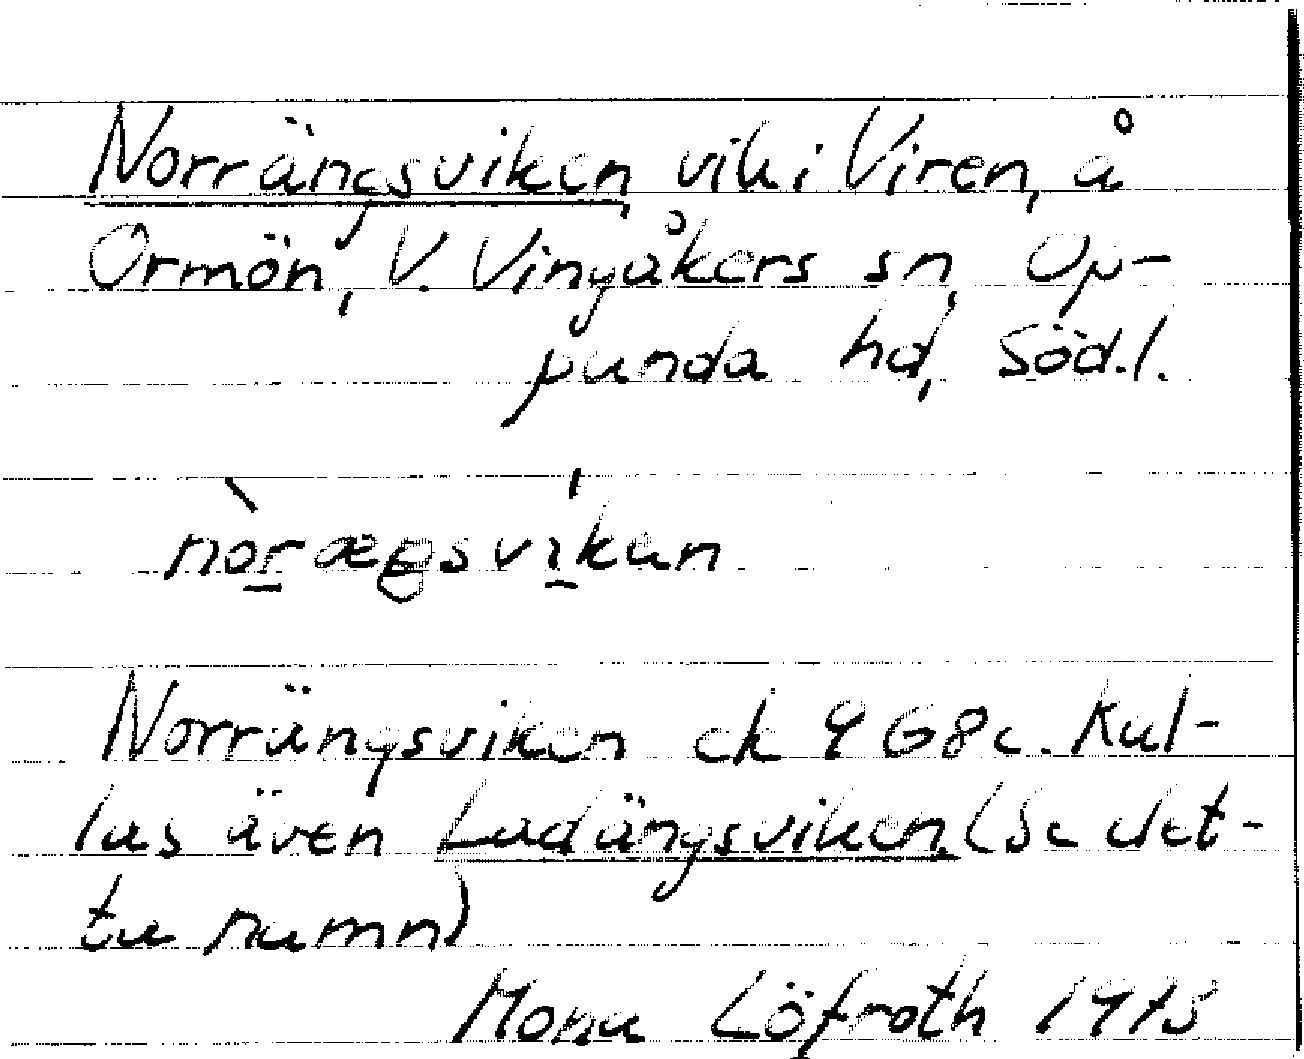 Norrängsviken, vik i Viren, å
Ormön, V. Vingåkers sn, Op-
punda hd, Söd.l.
Norrängsviken ek 9 G8c. Kal-
las även Ladängsviken. (Se det-
ta namn)
Mona Löfroth